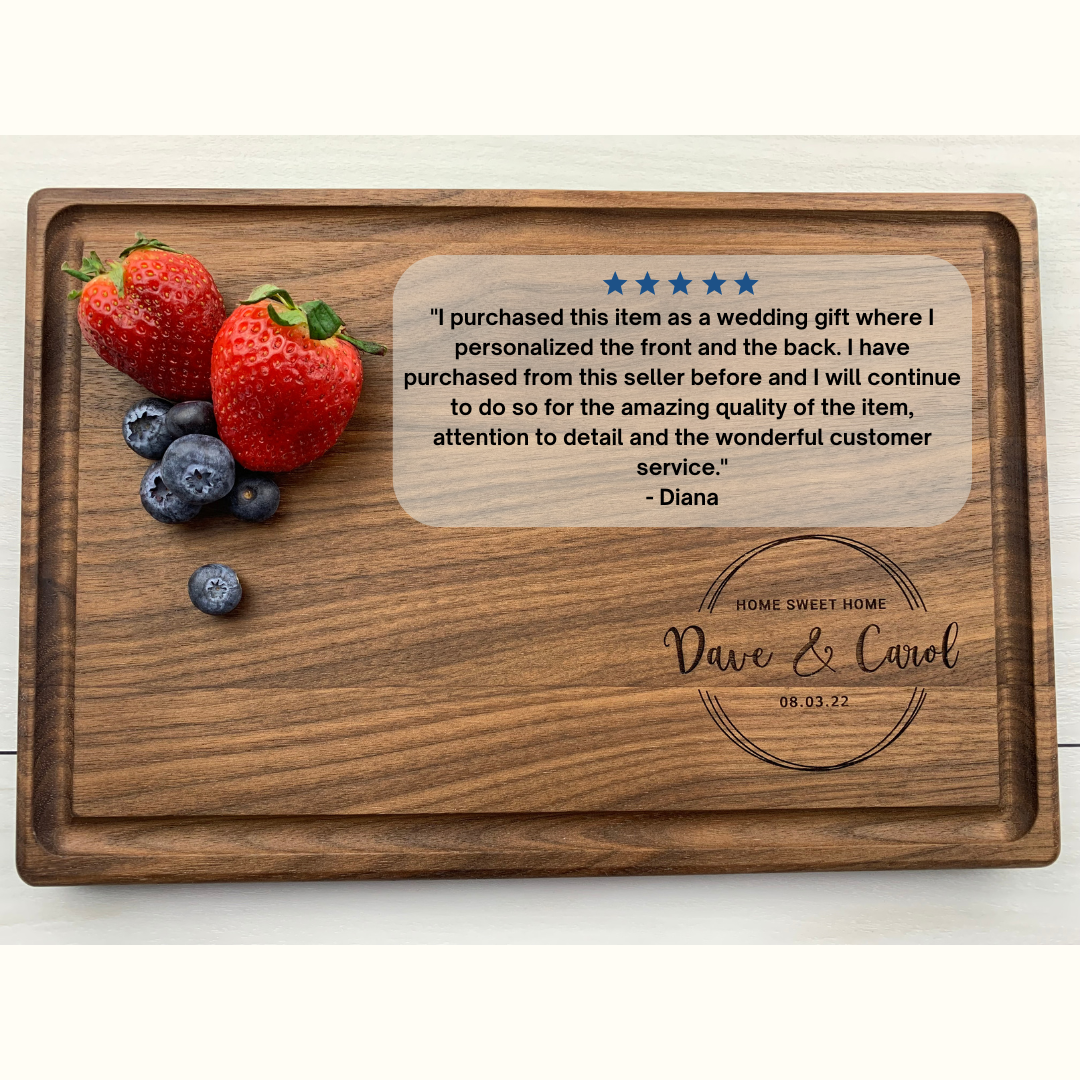 "I purchased this item as a wedding gift where I
personalized the front and the back. I have
purchased from this seller before and I will continue
to do so for the amazing quality of the item,
attention to detail and the wonderful customer
service."
- Diana
HOME SWEET HOME
Dave & Carol
08.03.22